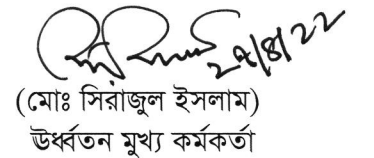 ২৭/৪/২২
(মোঃ সিরাজুল ইসলাম)
ঊর্ধ্বতন মুখ্য কর্মকর্তা